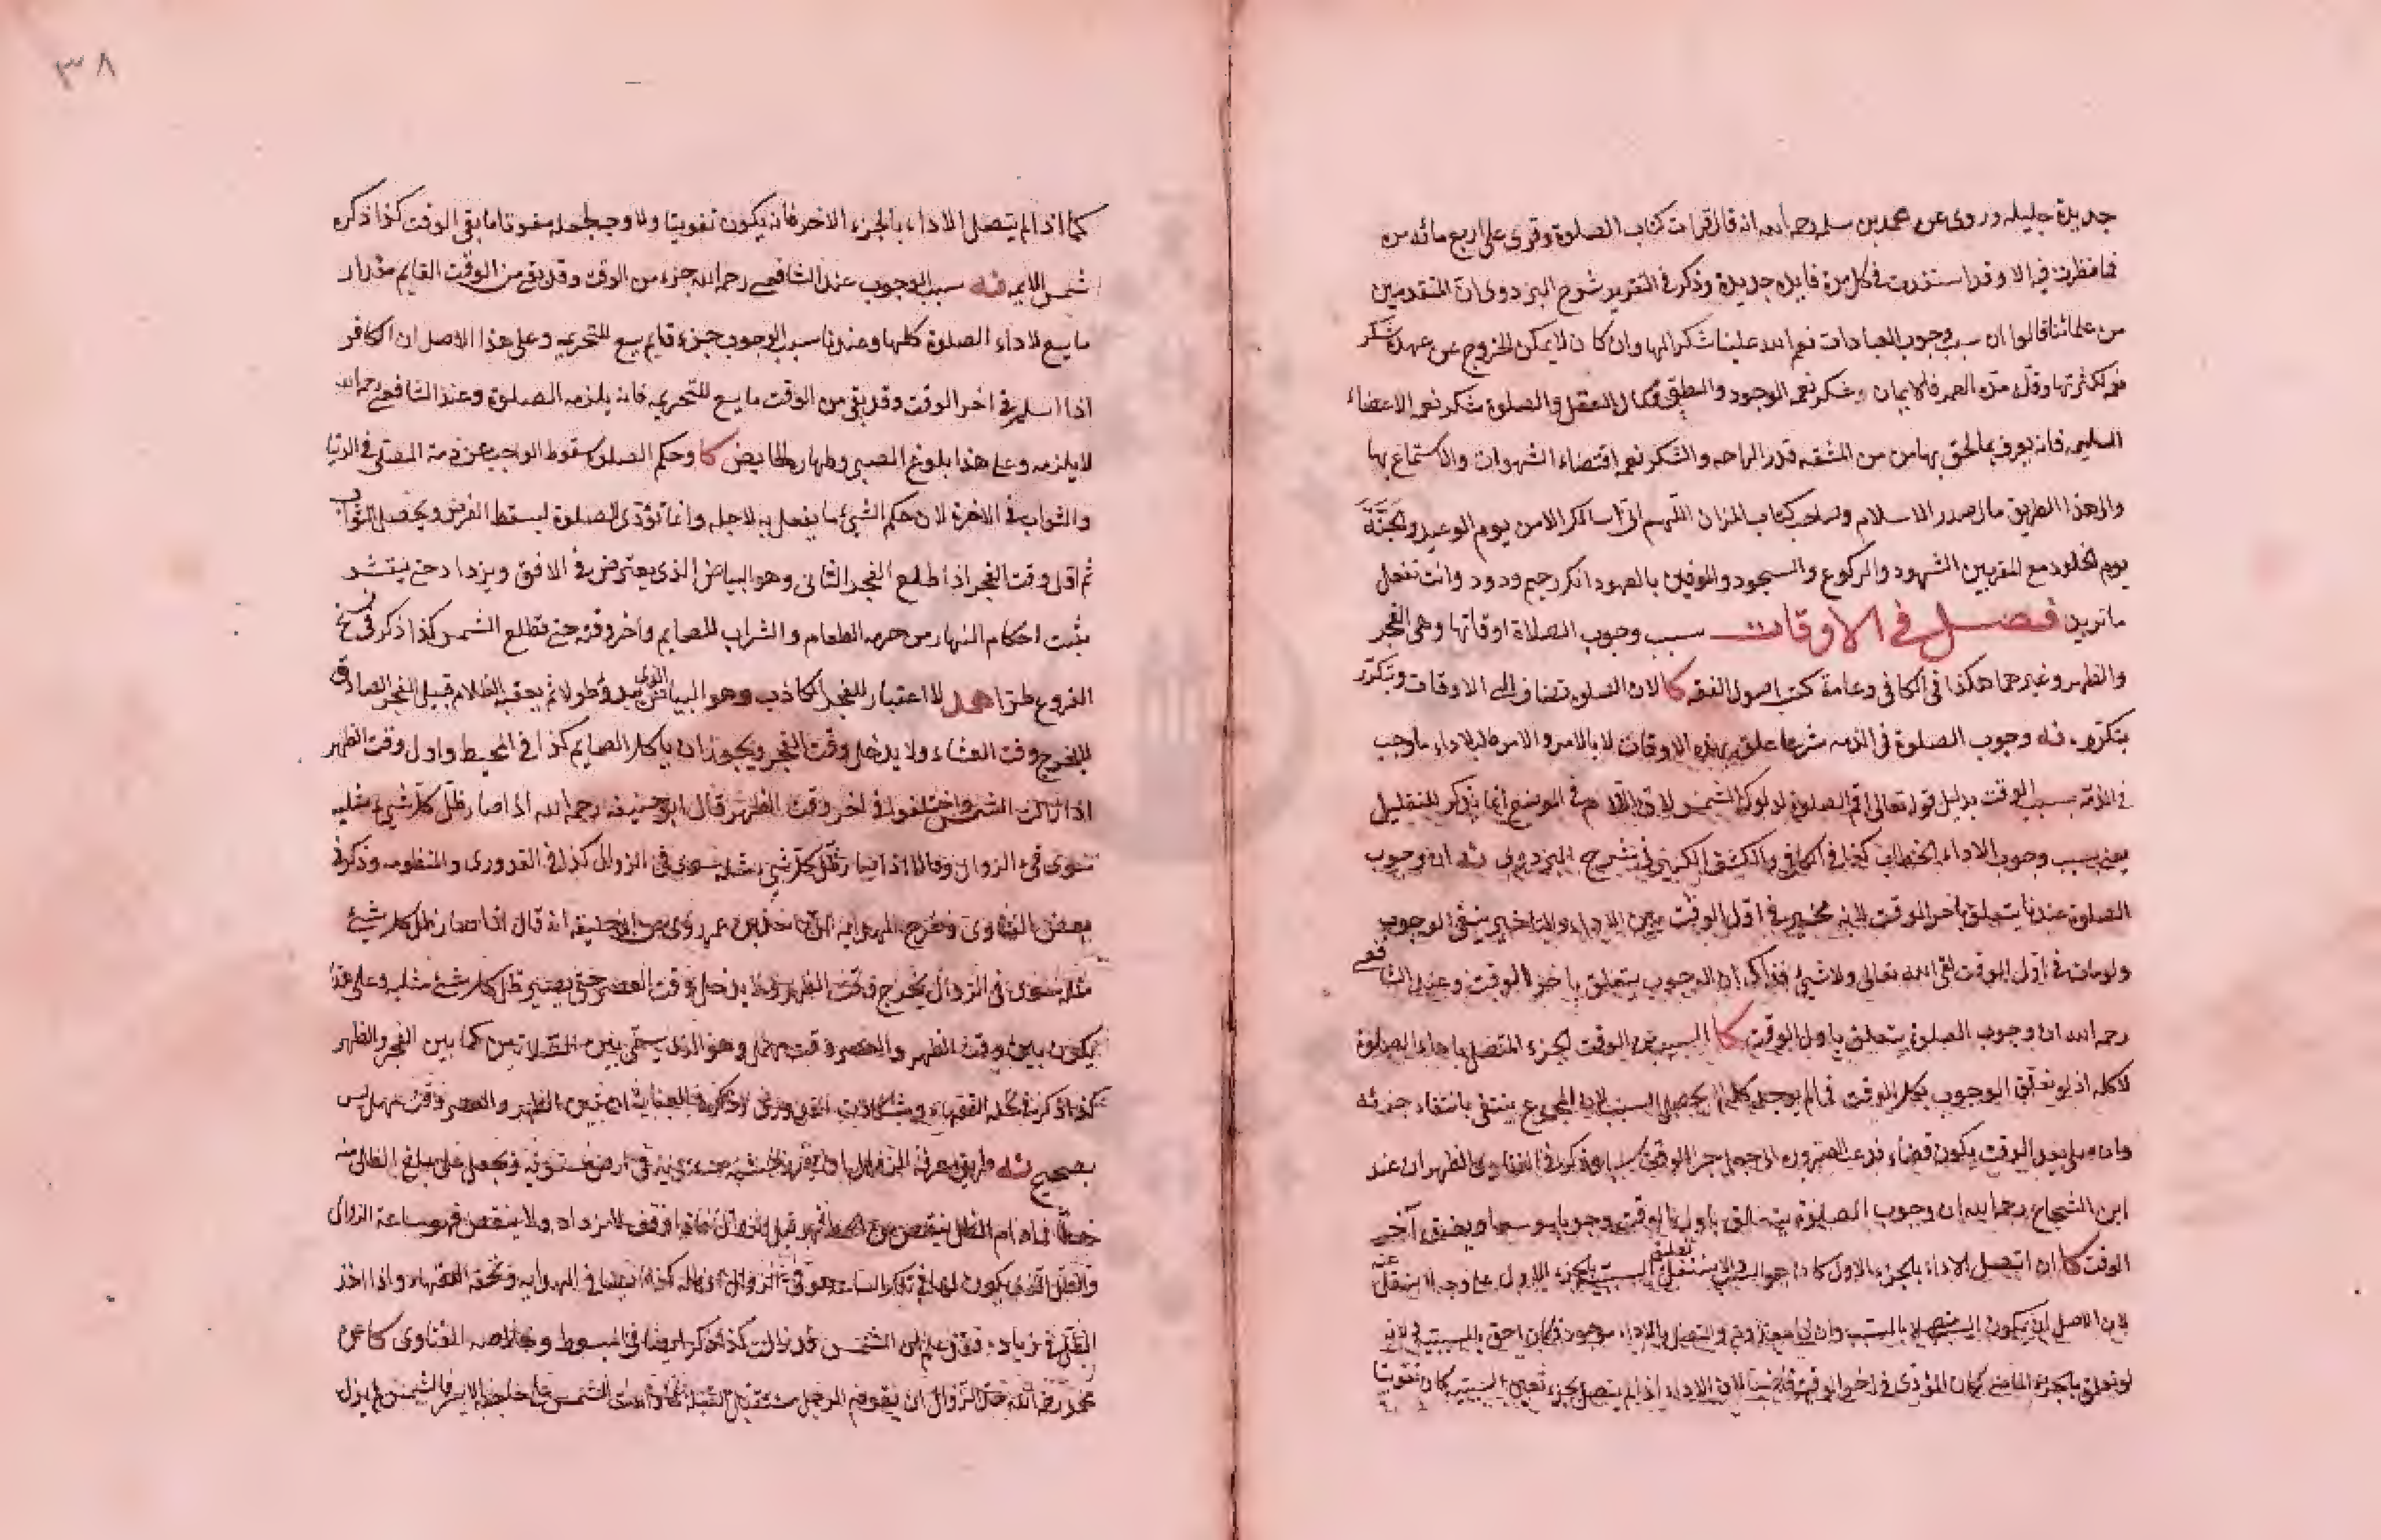 جديدة جليله وروى عن محمد بن سلمه رحمه الله انه قال قرات كتاب الصلوة وقرى على اربع مائه مرة
فما نظرت فيه الا وقد استفدت في كل مرة فايده جديدة وذكر في التقرير شرح البزدوى ان المتقدمين
من علمائنا قالوا ان سبب وجوب العبادات نعم الله علينا شكرا لها وان كان لا يمكن الخروج عن عهدة شكر
نعمه لكثرتها وقلة مدة العمر فالايمان وشكر نعمه الوجود والنطق وكمال العقل والصلوة شكر نعمه الاعضاء
السليمه فانه يعرف بما لحق بها من المشقه قدر الراحه والشكر نعمه اقتضاء الشهوات والاستمتاع بها
والى هذا الطريق مال صدر الاسلام وصاحب كتاب الميزان اللهم انى اسالك الامن يوم الوعيد والجنة
يوم الخلود مع المقربين الشهود والركوع والسجود والموفين بالعهود انك رحيم ودود وانت تفعل
ما تريد فصل في الاوقات سبب وجوب الصلاة اوقاتها وهى الفجر
والظهر وغيرهما هكذا فى الكافى وعامة كتب اصول الفقه كا لان الصلوة تضاف الى الاوقات وتتكرر
بتكررها نه وجوب الصلوة فى الذمه شرعا علق بهذه الاوقات لا بالامر والامر لاداء ما وجب
في الذمه بسبب الوقت بدليل قوله تعالى اقم الصلوة لدلوك الشمس لان اللام في الموضع انما يذكر للتعليل
يعنى بسبب وجوب الاداء الخطاب كذا في الكافى والكشف الكبير في شرح البزدوى نه ان وجوب
الصلوة عندنا يتعلق باخر الوقت لانه مخير في اول الوقت بين الاداء والتاخير ينفى الوجوب
ولو مات في اول الوقت لقى الله تعالى ولا شيء فذاك ان الوجوب يتعلق باخر الوقت وعند الشافعى
رحمه الله ان وجوب الصلوة يتعلق باول الوقت كا السبب من الوقت الجزء المتصل باداء الصلوة
لا كله اذ لو تعلق الوجوب بكل الوقت فما لم يوجد كله لا يحصل السبب لان المجموع ينتفى بانتفاء جزئه
وان صلى بعد الوقت يكون قضاء فدعت الضرورة الى جعل جزء الوقت سببا وذكر في الفتاوى الظهيريه ان عند
ابن الشجاع رحمه الله ان وجوب الصلوة يتعلق باول الوقت وجوبا موسعا ويضيق آخر
الوقت كا ان اتصل الاداء بالجزء الاول كان هو السبب والا ينتقل السببية بالجزء الاول على وجه لا ينتقل عنه
لان الاصل ان يكون السبب متصلا بالمسبب والمتصل بالاداء موجود فكان احق بالسببية ولانه
لو تعلق بالجزء الماضى لكان المؤدى في اخر الوقت قاضيا لان الاداء اذا لم يتصل بجزء تعين السببية كان تفويتا
٣٨
كما اذا لم يتصل الاداء بالجزء الاخر فانه يكون تفويتا ولا وجه لجعله مفوتا ما بقى الوقت كذا ذكره
شمس الايمه نه سبب الوجوب عند الشافعى رحمه الله جزء من الوقت وقد بقى من الوقت القايم مقدار
ما يسع لاداء الصلوة كلها وعندنا سبب الوجوب جزء قايم يسع للتحريمه وعلى هذا الاصل ان الكافر
اذا اسلم في اخر الوقت وقد بقى من الوقت ما يسع للتحريمه فانه يلزمه الصلوة وعند الشافعى رحمه الله
لا يلزمه وعلى هذا بلوغ الصبى وطهارة الحايض كا وحكم الصلوة سقوط الواجب عن ذمة المصلى فى الدنيا
والثواب فى الاخرة لان حكم الشيء ما يفعل به لاجله وانما تؤدى الصلوة ليسقط الفرض ويحصل الثواب
ثم اول وقت الفجر اذا طلع الفجر الثانى وهو البياض الذى يعترض في الافق ويزداد حتى ينتشر
يثبت احكام النهار من حرمه الطعام والشراب للصايم وآخر وقته حتى تطلع الشمس كذا ذكر فى شرح
الفروع طرا هد لا اعتبار للفجر الكاذب وهو البياض الذى يبدو طولا ثم يعقبه الظلام قبيل الفجر الصادق
لا يخرج وقت العشاء ولا يدخل وقت الفجر ويجوز ان ياكل الصايم كذا فى المحيط واول وقت الظهر
اذا زالت الشمس واختلفوا في اخر وقت الظهر قال ابو حنيفه رحمه الله اذا صار ظل كل شيء مثليه
سوى في الزوال وقالا اذا صار ظل كل شيء مثله سوى فى الزوال كذا في القدورى والمنظومه وذكر في
بعض الفتاوى وشرح الهدايه روى عن ابى حنيفه انه قال اذا صار ظل كل شيئ
مثله سوى فى الزوال يخرج وقت الظهر ولا يدخل وقت العصر حتى يصير ظل كل شئ مثليه وعلى هذا
يكون بين وقت الظهر والعصر وقت مهمل وهو الذى يسمى بين الصلاتين كما بين الفجر والظهر
كذا ذكر في تحفه الفقهاء بين الظهر والعصر وقت مهمل ليس
بصحيح نه طريق معرفة الزوال ان يغرز خشبه مستوية فى ارض مستويه ويجعل على مبلغ الظل منه
خطا فما دام الظل ينقص من الخط فهو قبل الزوال فاذا وقف لا يزداد ولا ينقص فهو ساعة الزوال
والظل الذى يكون لها في تلك الساعه هو في الزوال كذا ايضا في الهدايه وتحفه الفقهاء واذا اخذ
الظل في زياده فقد علم ان الشمس قد زالت كذا ذكر ايضا في المبسوط وخلاصه الفتاوى كا عن
محمد رحمه الله حد الزوال ان يقوم الرجل مستقبل القبله فما دامت الشمس على حاجبه الايسر فالشمس لم يزل